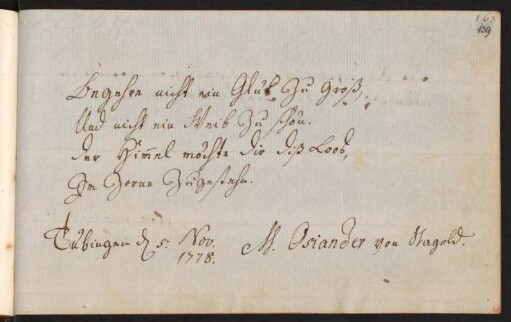 163
159
Begehre nicht ein Gluk zu groß,
Und nicht ein Weib zu schön.
der Himmel möchte dir diß Loos,
Im Zorne zugestehn.
Tübingen d. 5. Nov. 1778.
M. Osiander von Nagold.